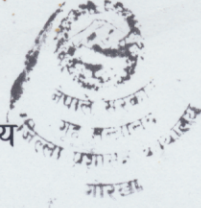 नेपाल सरकार
गृह मन्त्रालय
य
जिल्ला प्रशासन कार्यालय
गोरखा